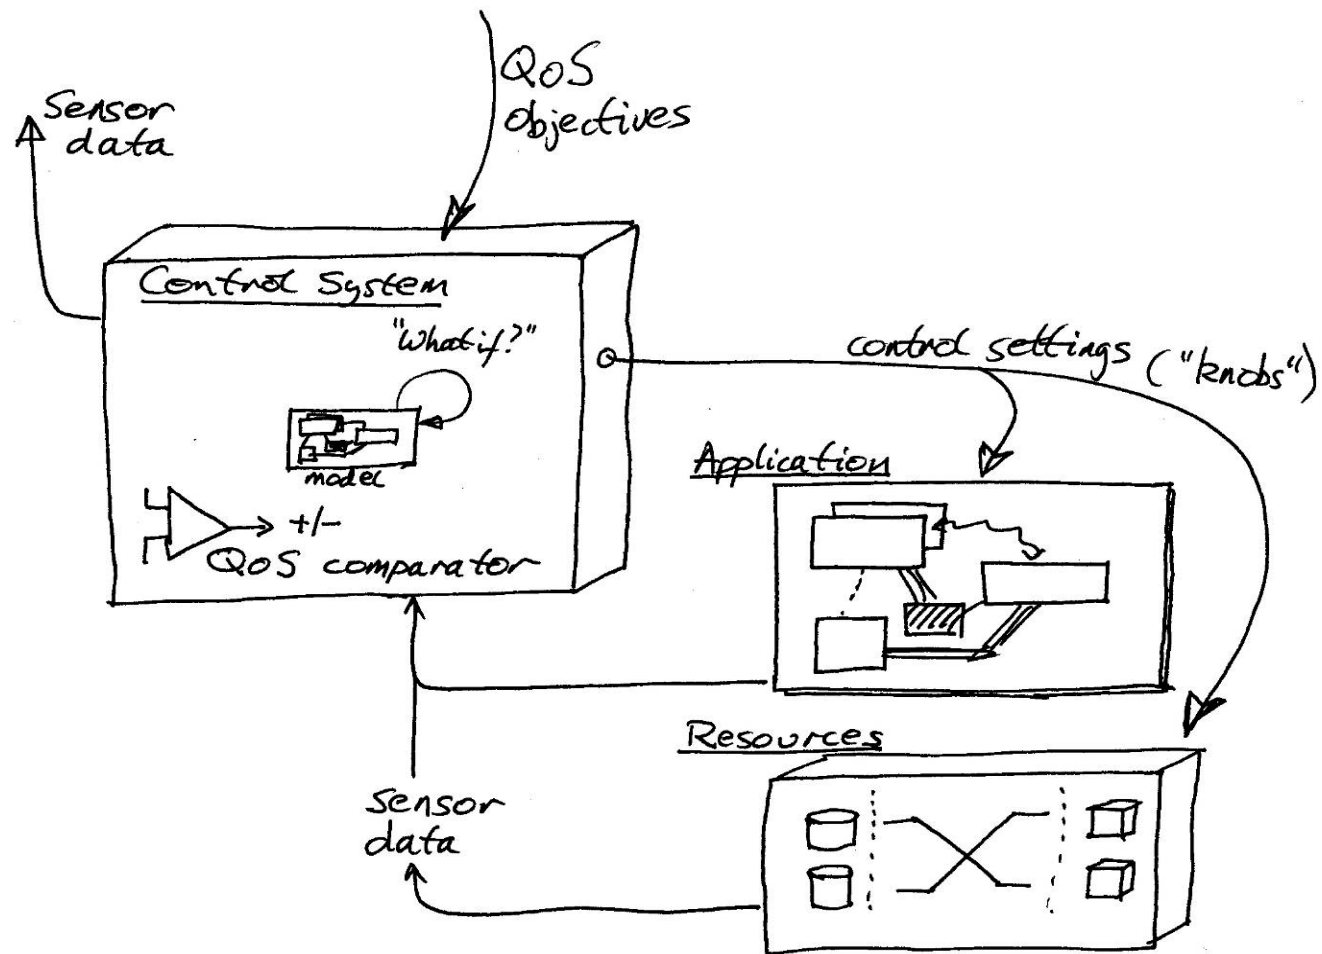 QoS
objectives
Sensor
data
Control System
"What if?"
model
+/-
QoS comparator
control settings
("knobs")
Application
Resources
sensor
data